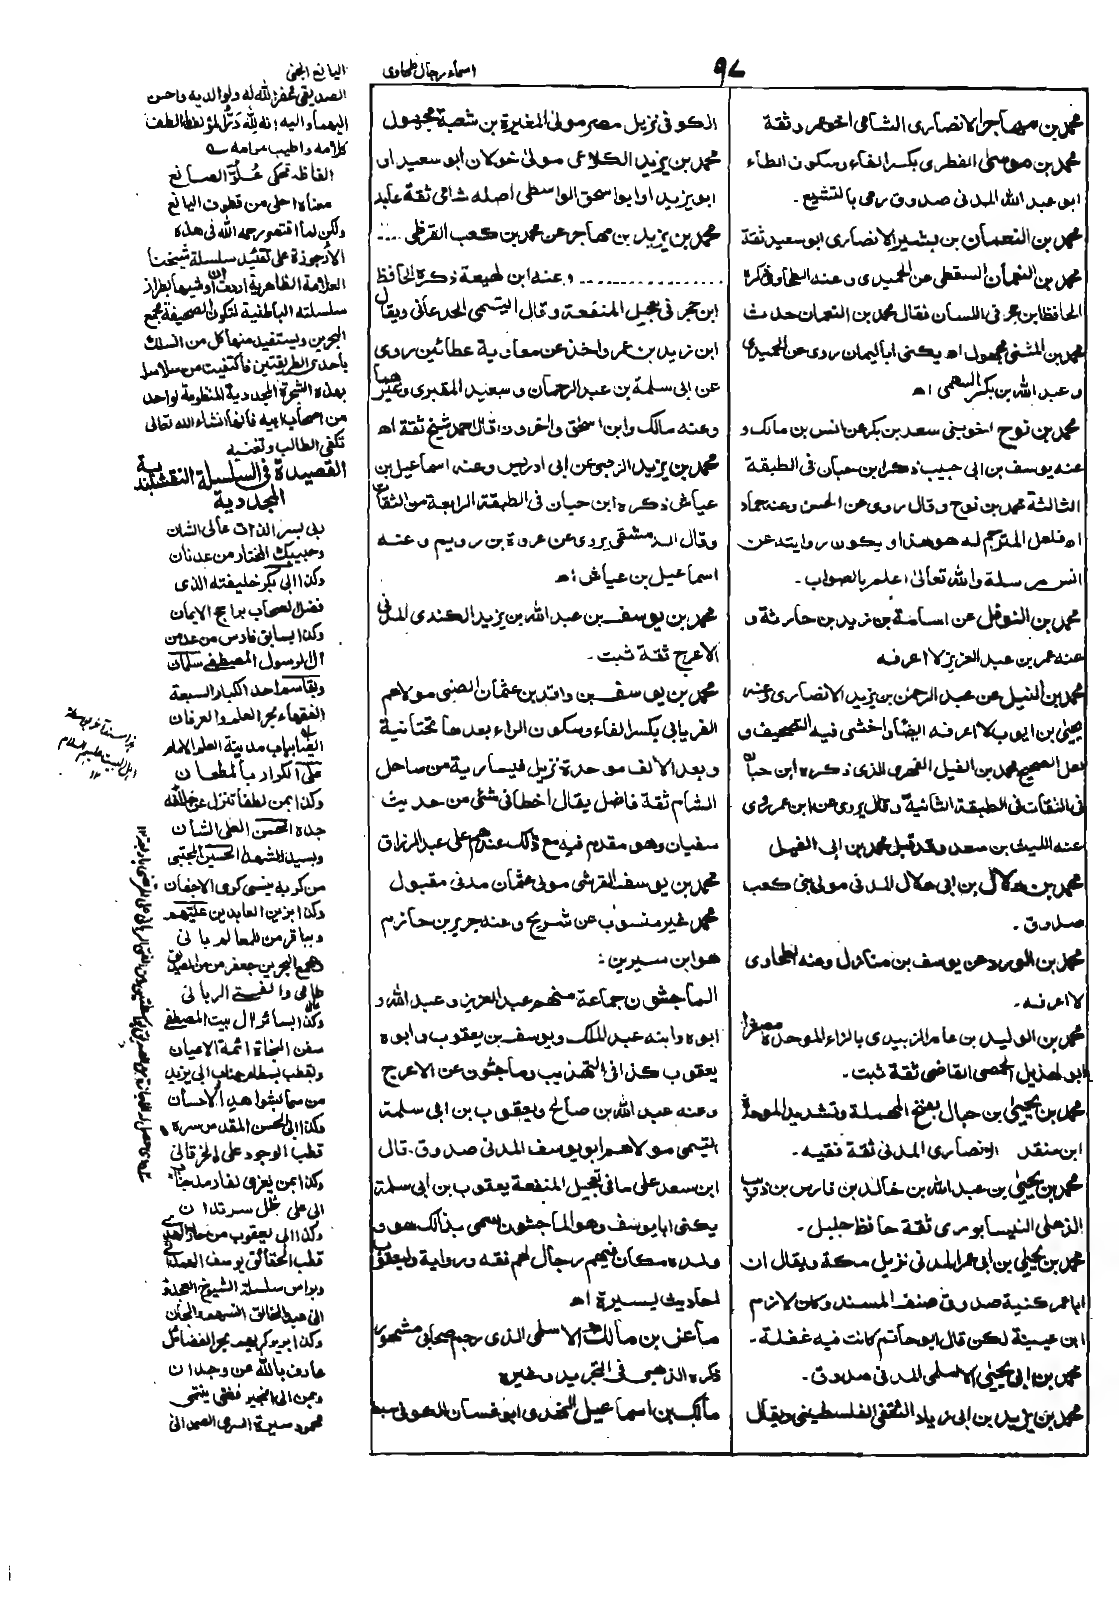 ٩٧
اسماء رجال طحاوى
محمد بن مهاجر الانصارى الشامى اخو عمرو ثقة
محمد بن موسى الفطرى بكسر الفاء وسكون الطاء
ابو عبد الله المدنى صدوق رمى بالتشيع ۔
محمد بن النعمان بن بشير الانصارى ابو سعيد ثقة
محمد بن النعمان السقطى عن الحميدى وعنه الطحاوى ذكره
الحافظ ابن حجر فى اللسان فقال محمد بن النعمان حدث
محمد بن المثنى مجهول اه يكنى ابا اليمان روى عن الحميدى
وعبد الله بن بكر السهمى اه
محمد بن نوح اخو بنى سعد بن بكر عن انس بن مالك و
عنه يوسف بن ابى حبيب ذكره ابن حبان فى الطبقة
الثالثة محمد بن نوح وقال روى عن الحسن وعنه حماد
اه فلعل المترجم له هو هذا ويكون روايته عن
انس مرسلة والله تعالىٰ اعلم بالصواب ۔
محمد بن النوفل عن اسامة بن زيد بن حارثة و
عنه عمر بن عبد العزيز لا اعرفه
محمد بن النيل عن عبد الرحمٰن بن يزيد الانصارى وعنه
يحيىٰ بن ايوب لا اعرفه ايضا واخشى فيه التصحيف و
لعل الصحيح محمد بن الفيل الفهرى الذى ذكره ابن حبان
فى الثقات فى الطبقة الثانية وقال يروى عن ابن عمر روى
عنه الليث بن سعد وقد قيل محمد بن ابى الفيل
محمد بن هلال بن ابى هلال المدنى مولى بنى كعب
صدوق ۔
محمد بن الورد عن يوسف بن منازل وعنه الطحاوى
لا اعرفه ۔
محمد بن الوليد بن عامر الزبيدى بالزاء الموحدة مصغرا
ابو الهذيل الحمصى القاضى ثقة ثبت ۔
محمد بن يحيىٰ بن حبان بفتح المهملة وتشديد الموحدة
ابن منقد الانصارى المدنى ثقة فقيه ۔
محمد بن يحيىٰ بن عبد الله بن خالد بن فارس بن ذويب
الذهلى النيسابورى ثقة حافظ جليل ۔
محمد بن يحيىٰ بن ابى عمر المدنى نزيل مكة ويقال ان
ابا عمر كنية صدوق صنف المسند وكان لازم
ابن عيينة لكن قال ابو حاتم كانت فيه غفلة ۔
محمد بن ابى يحيىٰ الاسلمى المدنى صدوق ۔
محمد بن يزيد بن ابى زياد الثقفى الفلسطينى ويقال
الكوفى نزيل مصر مولى المغيرة بن شعبة مجهول
محمد بن يزيد الكلاعى مولى خولان ابو سعيد او
ابو يزيد او ابو اسحق الواسطى اصله شامى ثقة عابد
محمد بن يزيد بن مهاجر عن محمد بن كعب القرظى ....
.................. وعنه ابن لهيعة ذكره الحافظ
ابن حجر فى تعجيل المنفعة وقال التيمى الجدعانى ويقال
ابن زيد بن عمر واخذ عن معاوية عطائين روى
عن ابى سلمة بن عبد الرحمان وسعيد المقبرى وغيرهما
وعنه مالك وابن اسحٰق واخرون قال احمد شيخ ثقة اه
محمد بن يزيد الرحبى عن ابى ادريس وعنه اسماعيل بن
عياش ذكره ابن حبان فى الطبقة الرابعة من الثقات
وقال الدمشقى يروى عن عروة بن رويم وعنه
اسماعيل بن عياش اه
محمد بن يوسف بن عبد الله بن يزيد الكندى المدنى
الاعرج ثقة ثبت ۔
محمد بن يوسف بن واقد بن عثمان الضبى مولاهم
الفريابى بكسر الفاء وسكون الراء بعدها تحتانية
وبعد الالف موحدة نزيل قيسارية من ساحل
الشام ثقة فاضل يقال اخطأ فى شئى من حديث
سفيان وهو مقدم فيه مع ذٰلك عندهم على عبد الرزاق
محمد بن يوسف القرشى مولى عثمان مدنى مقبول
محمد غير منسوب عن شريح وعنه جرير بن حازم
هو ابن سيرين :
الماجشون جماعة منهم عبد العزيز وعبد الله و
ابوه وابنه عبد الملك ويوسف بن يعقوب وابوه
يعقوب كذا فى التهذيب وماجثون عن الاعرج
وعنه عبد الله بن صالح ويعقوب بن ابى سلمة
التيمى مولاهم ابو يوسف المدنى صدوق ۔ قال
ابن سعد على ما فى تعجيل المنفعة يعقوب بن ابى سلمة
يكنى ابا يوسف وهو الماجشون سمى بذالك هو و
ولده مكان فيهم رجال لهم فقه ورواية وليعقوب
احاديث يسيرة اه
ماعز بن مالك هو الاسلمى الذى رجم صحابى مشهور
ذكره الذهبى فى التجريد وغيره
مالك بن اسماعيل النهدى ابو غسان الكوفى سبط
اليانع الجنى
الصديقى غفر الله له ولوالديه واحسن
اليهما واليه انه لله در المؤلف ما الطف
كلامه واطيب مرامه ے
الفاظه تحكى حلو الصانع
معناه احلى من قطوف اليانع
ولكن لما اقتصر رحمه الله فى هذه
الأرجوزة على تمثيل سلسلة شيخنا
العلامة الظاهرية اردت ان اوشيها بطراز
سلسلته الباطنية لتكون الصحيفة مجمع
البحرين ويستفيد منها كل من السلك
بأحدى الطريقتين فاكتفيت من سلاسل
بهذه الشجرة المجددية المنظومة لواحد
من اصحاب ابيه فانها انشاء الله تعالى
تكفى الطالب وتغنيه
القصيدة فى السلسلة النقشبندية
المجددية
ربى بسر الذات عالى الشان
وحبيبك المختار من عدنان
وكذا ابى بكر خليفته الذى
فضل الصحاب براجح الايمان
وكذا بسابق فارس من عدمن
آل الرسول المصطفى سلمان
وبقاسم احد الكبار السبعة
الفقهاء بحر العلم والعرفان
ايضا بباب مدينة العلم الامام
على الكرار بالمطعان
وكذا بمن لطفا تنزل عن خلافة
جده الحسن العلى الشان
وبسيد الشهداء الحسين المجتبى
من كربه ينسى كرى الاجفان
وكذا بزين العابدين عليهم
وبباقر من للمعالم بانى
مجمع البحرين جعفر من الصديق
طامى والفتى الربانى
وكذا بسائر آل بيت المصطفى
سفن النجاة ائمة الاعيان
وبقطب بسطام جناب ابى يزيد
من سما بشواهد الأحسان
وكذا ابى الحسن المقدس سره
قطب الوجود على الخرقانى
وكذا بمن يعزى لفارمد جنابه
ابى على ظل سرتدان
وكذا ابى يعقوب من حاز الهدى
قطب الحقائق يوسف الهمدانى
وبراس سلسلة الشيوخ العجدوا
ابى عبد الخالق
وكذا بريوكريهم بحر الفضائل
عارف بالله عن وجدان
وبمن الى انجير فغنى ينتمى
محمود سيرة السرى الصمدانى